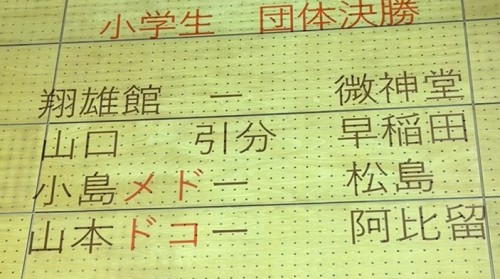 小学生 団体決勝
翔雄館 ー 微神堂
山口 引分 早稲田
小島メドー 松島
山本ドコー 阿比留